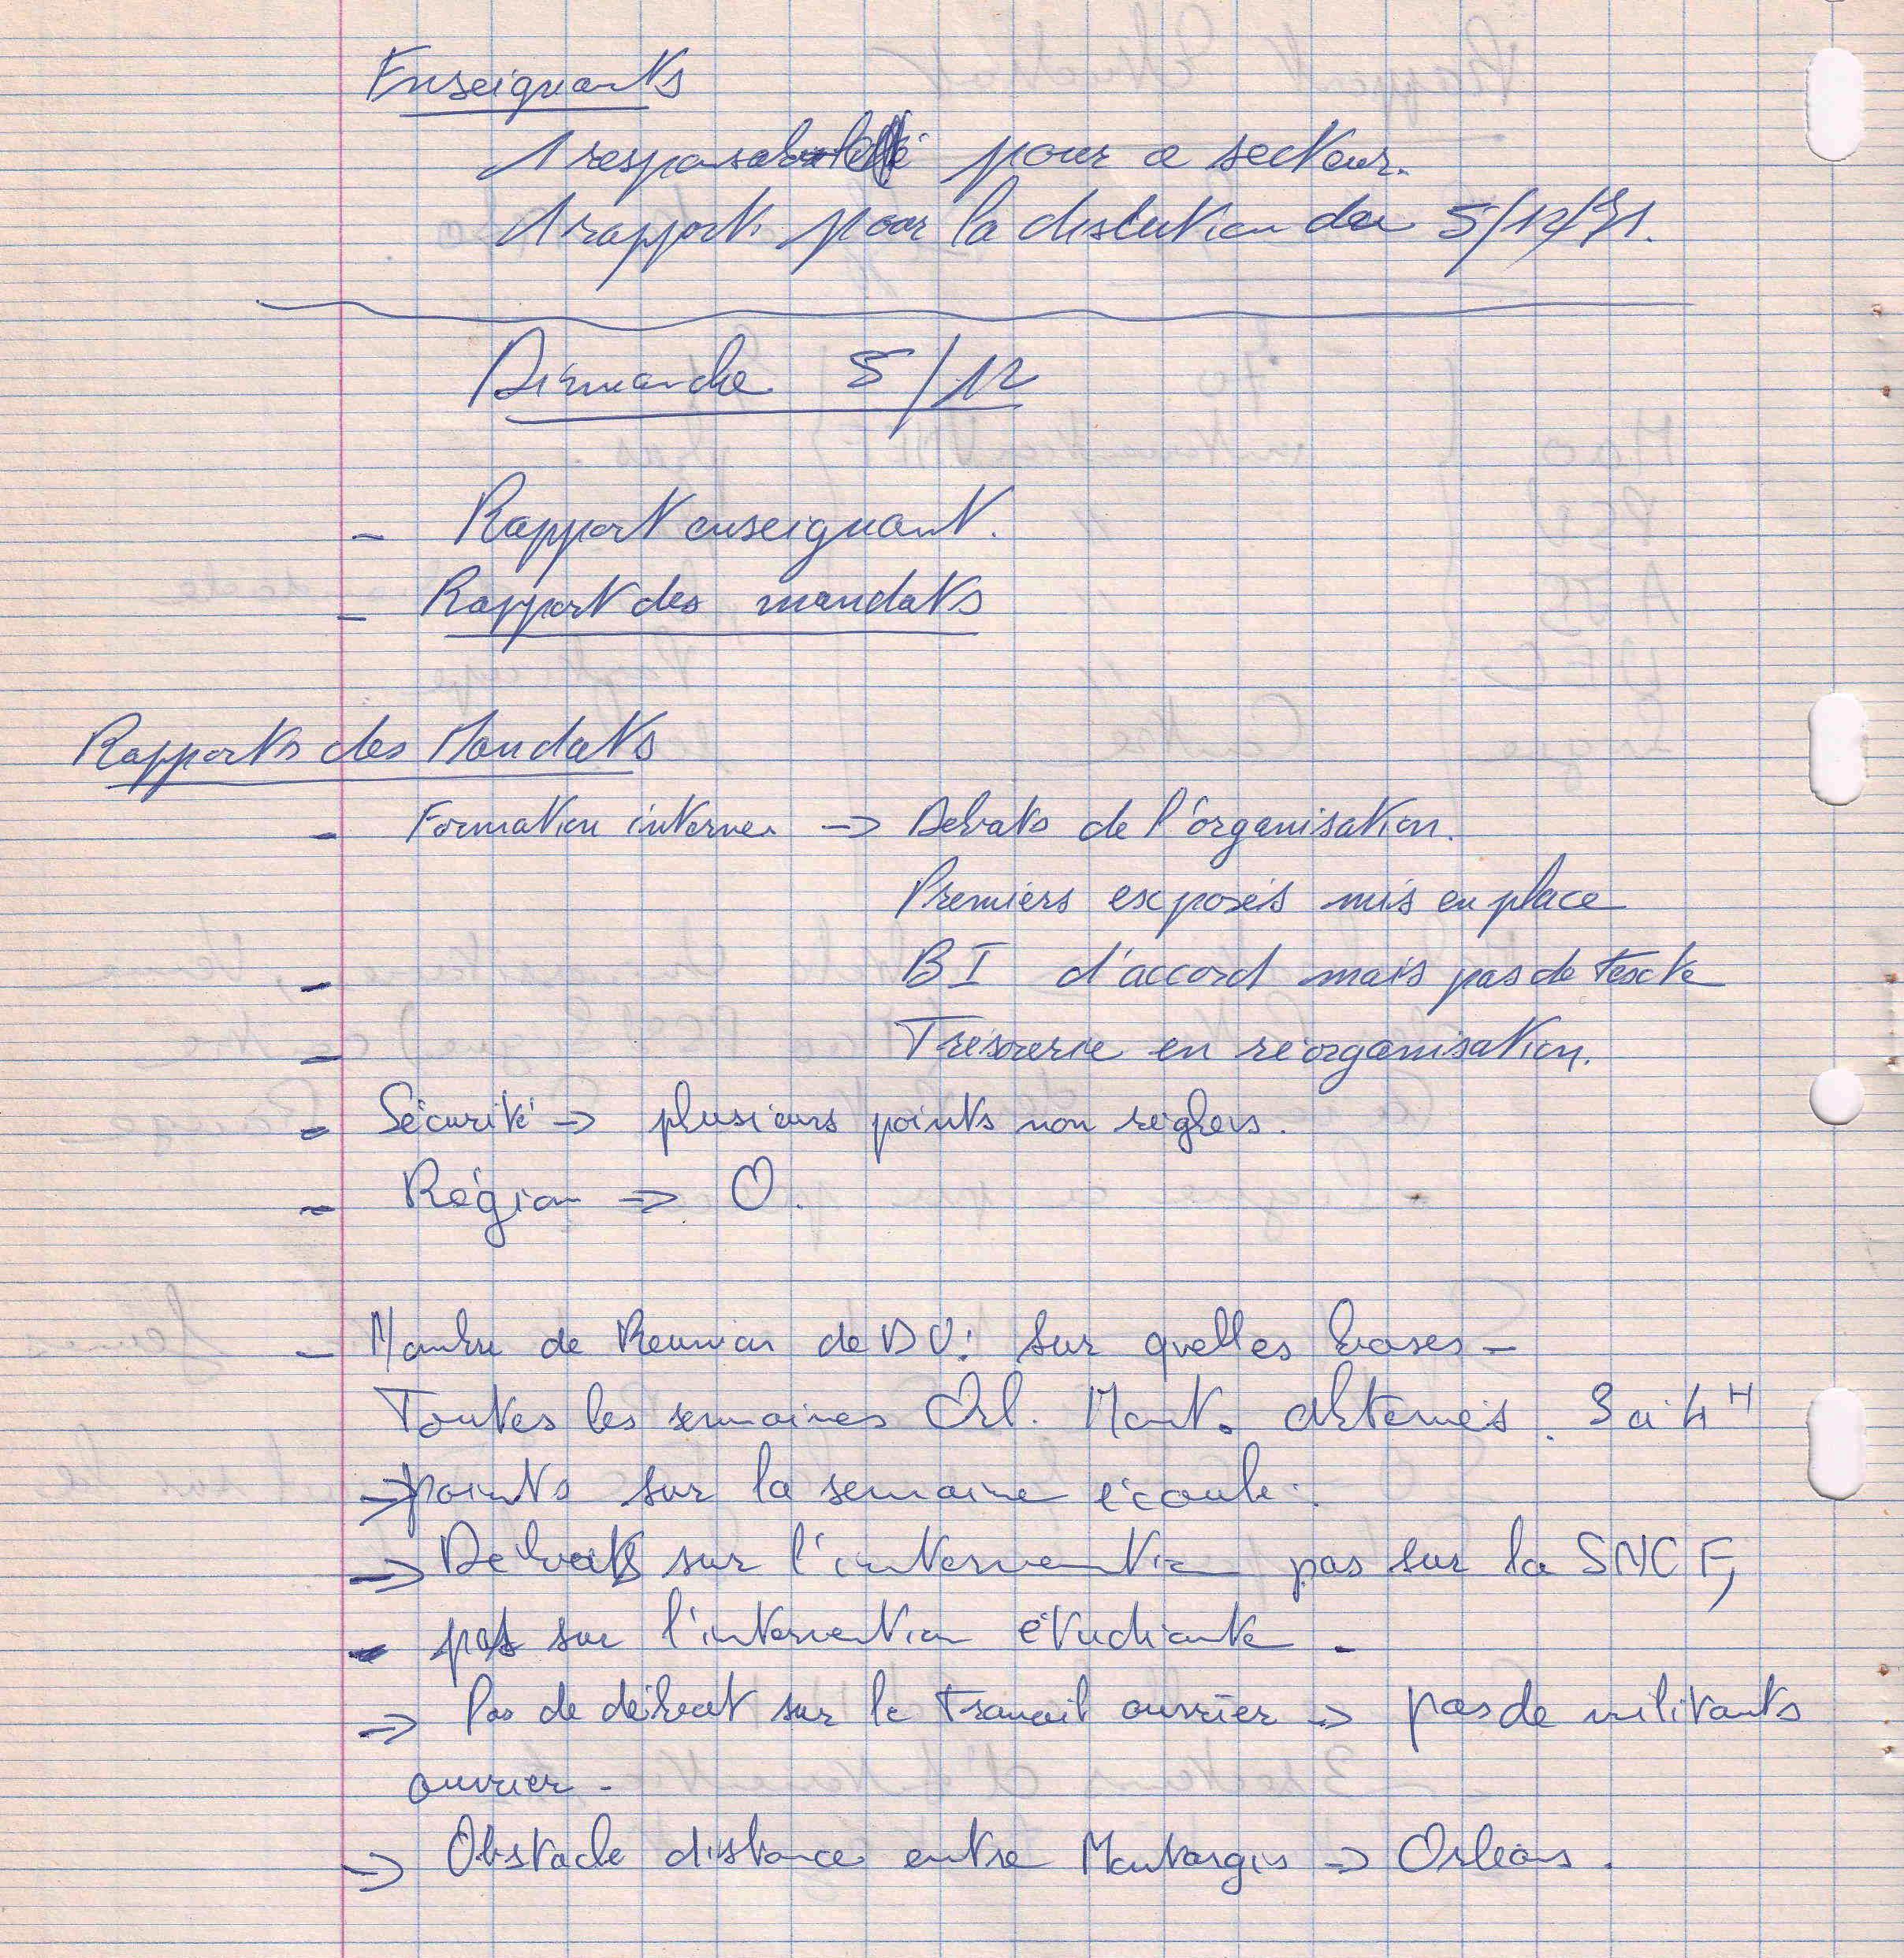 Enseignants
1 responsabilité pour a secteur.
1 rapport pour la discution du 5/12/71.
Dimanche 5/12
- Rapport enseignant.
- Rapport des mandats
Rapports des Mandats
- Formation interne -> Debats de l'organisation.
Premiers exposés mis en place
- BI d'accord mais pas de texte
- Trésorerie en réorganisation.
- Sécurité -> plusieurs points non réglers.
- Région -> O.
- de Reunion de DV: sur quelles bases -
Toutes les semaines Orl. Mont. alternés. 3 à 4H
-> points sur la semaine écoulé.
-> Debats sur l'intervention pas sur la SNCF,
- pas sur l'intervention étudiante -
-> Pas de débat sur le travail ouvrier -> pas de militants
ouvrier -
-> Obstacle distance entre Montargis -> Orléans.